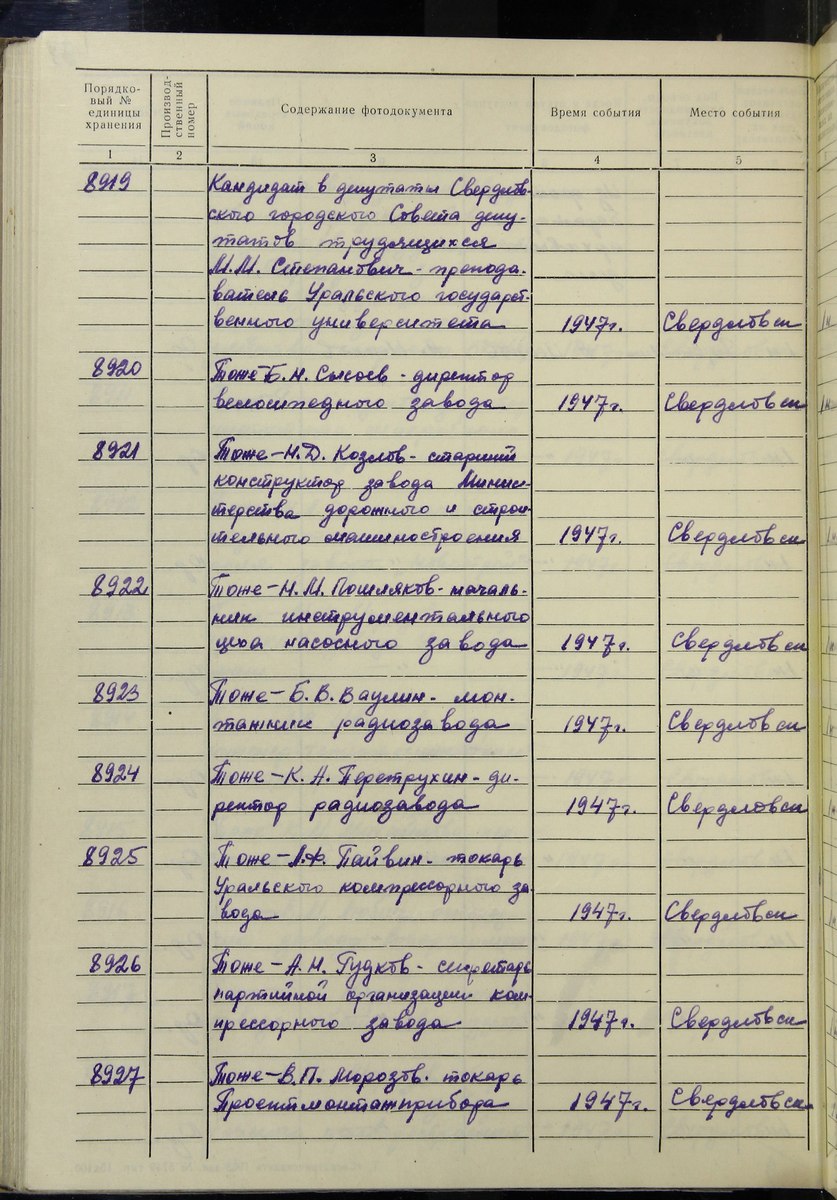 Порядко-
вый №
единицы
хранения
Производ-
ственный
номер
Содержание фотодокумента
Время события
Место события
1 2 3 4 5
8919 Кандидат в депутаты Свердлов-
ского городского Совета депу-
татов трудящихся
М.М. Степанович - препода-
ватель Уральского государст-
венного университета 1947г. Свердловск
8920 Тоже - Б.Н. Сысоев - директор
велосипедного завода 1947г. Свердловск
8921 Тоже - Н.Д. Козлов - старший
конструктор завода Минис-
терства дорожного и строи-
тельного машиностроения 1947г. Свердловск
8922 Тоже - Н.М. Пошляков - началь-
ник инструментального
цеха насосного завода 1947г. Свердловск
8923 Тоже - Б.В. Ваулин - мон-
тажник радиозавода 1947г. Свердловск
8924 Тоже - К.А. Перетрухин - ди-
ректор радиозавода 1947г. Свердловск
8925 Тоже - Л.Ф. Пайвин - токарь
Уральского компрессорного за-
вода 1947г. Свердловск
8926 Тоже - А.Н. Гудков - секретарь
партийной организации ком-
прессорного завода 1947г. Свердловск
8927 Тоже - В.П. Морозов - токарь
Проектмонтажприбора 1947г. Свердловск